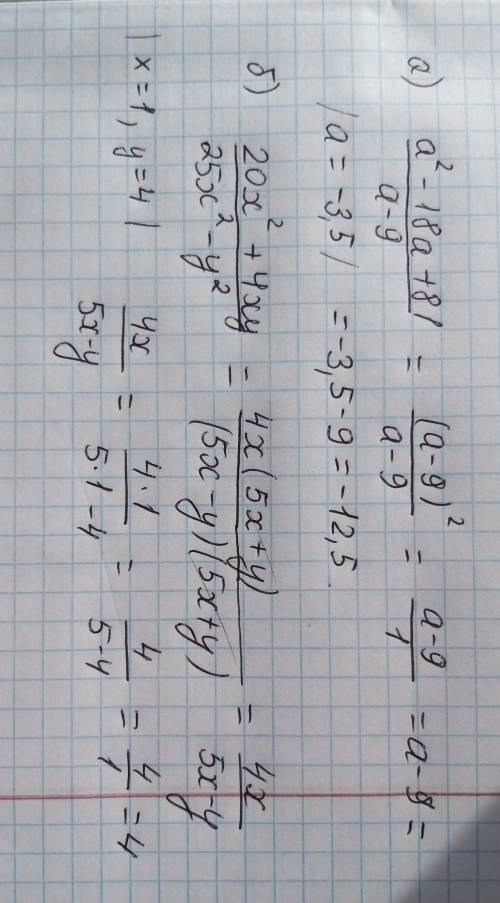 а) (a² - 18a + 81)/(a - 9) = (a - 9)²/(a - 9) = (a - 9)/1 = a - 9 =
/a = -3,5/ = -3,5 - 9 = -12,5
б) (20x² + 4xy)/(25x² - y²) = 4x(5x + y)/((5x - y)(5x + y)) = 4x/(5x - y)
|x = 1, y = 4| 4x/(5x - y) = (4·1)/(5·1 - 4) = 4/(5 - 4) = 4/1 = 4